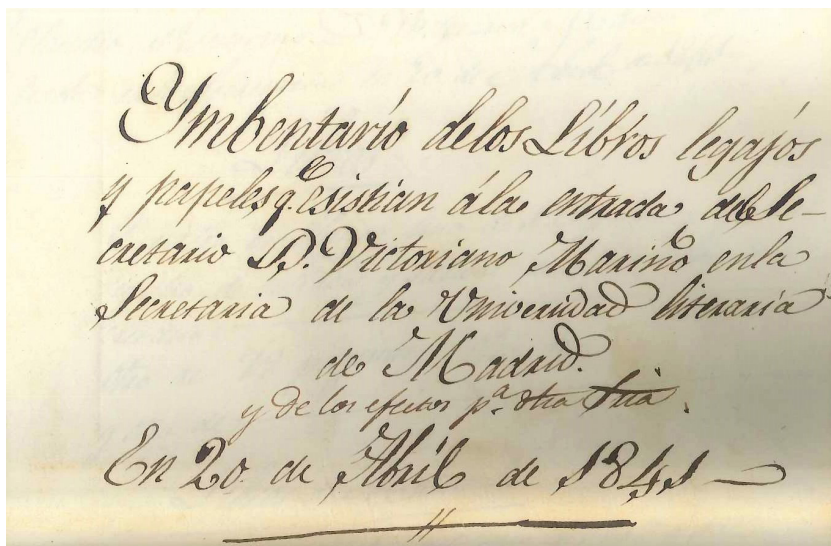 Ymbentario delos Libros legajos
y papeles q.e esistian ála entrada del Se-
cretario D. Victoriano Mariño enla
Secretaria de la Universidad literaria
de Madrid.
y de los efectos p.a dha Sria.
En 20 de Abril de 1841